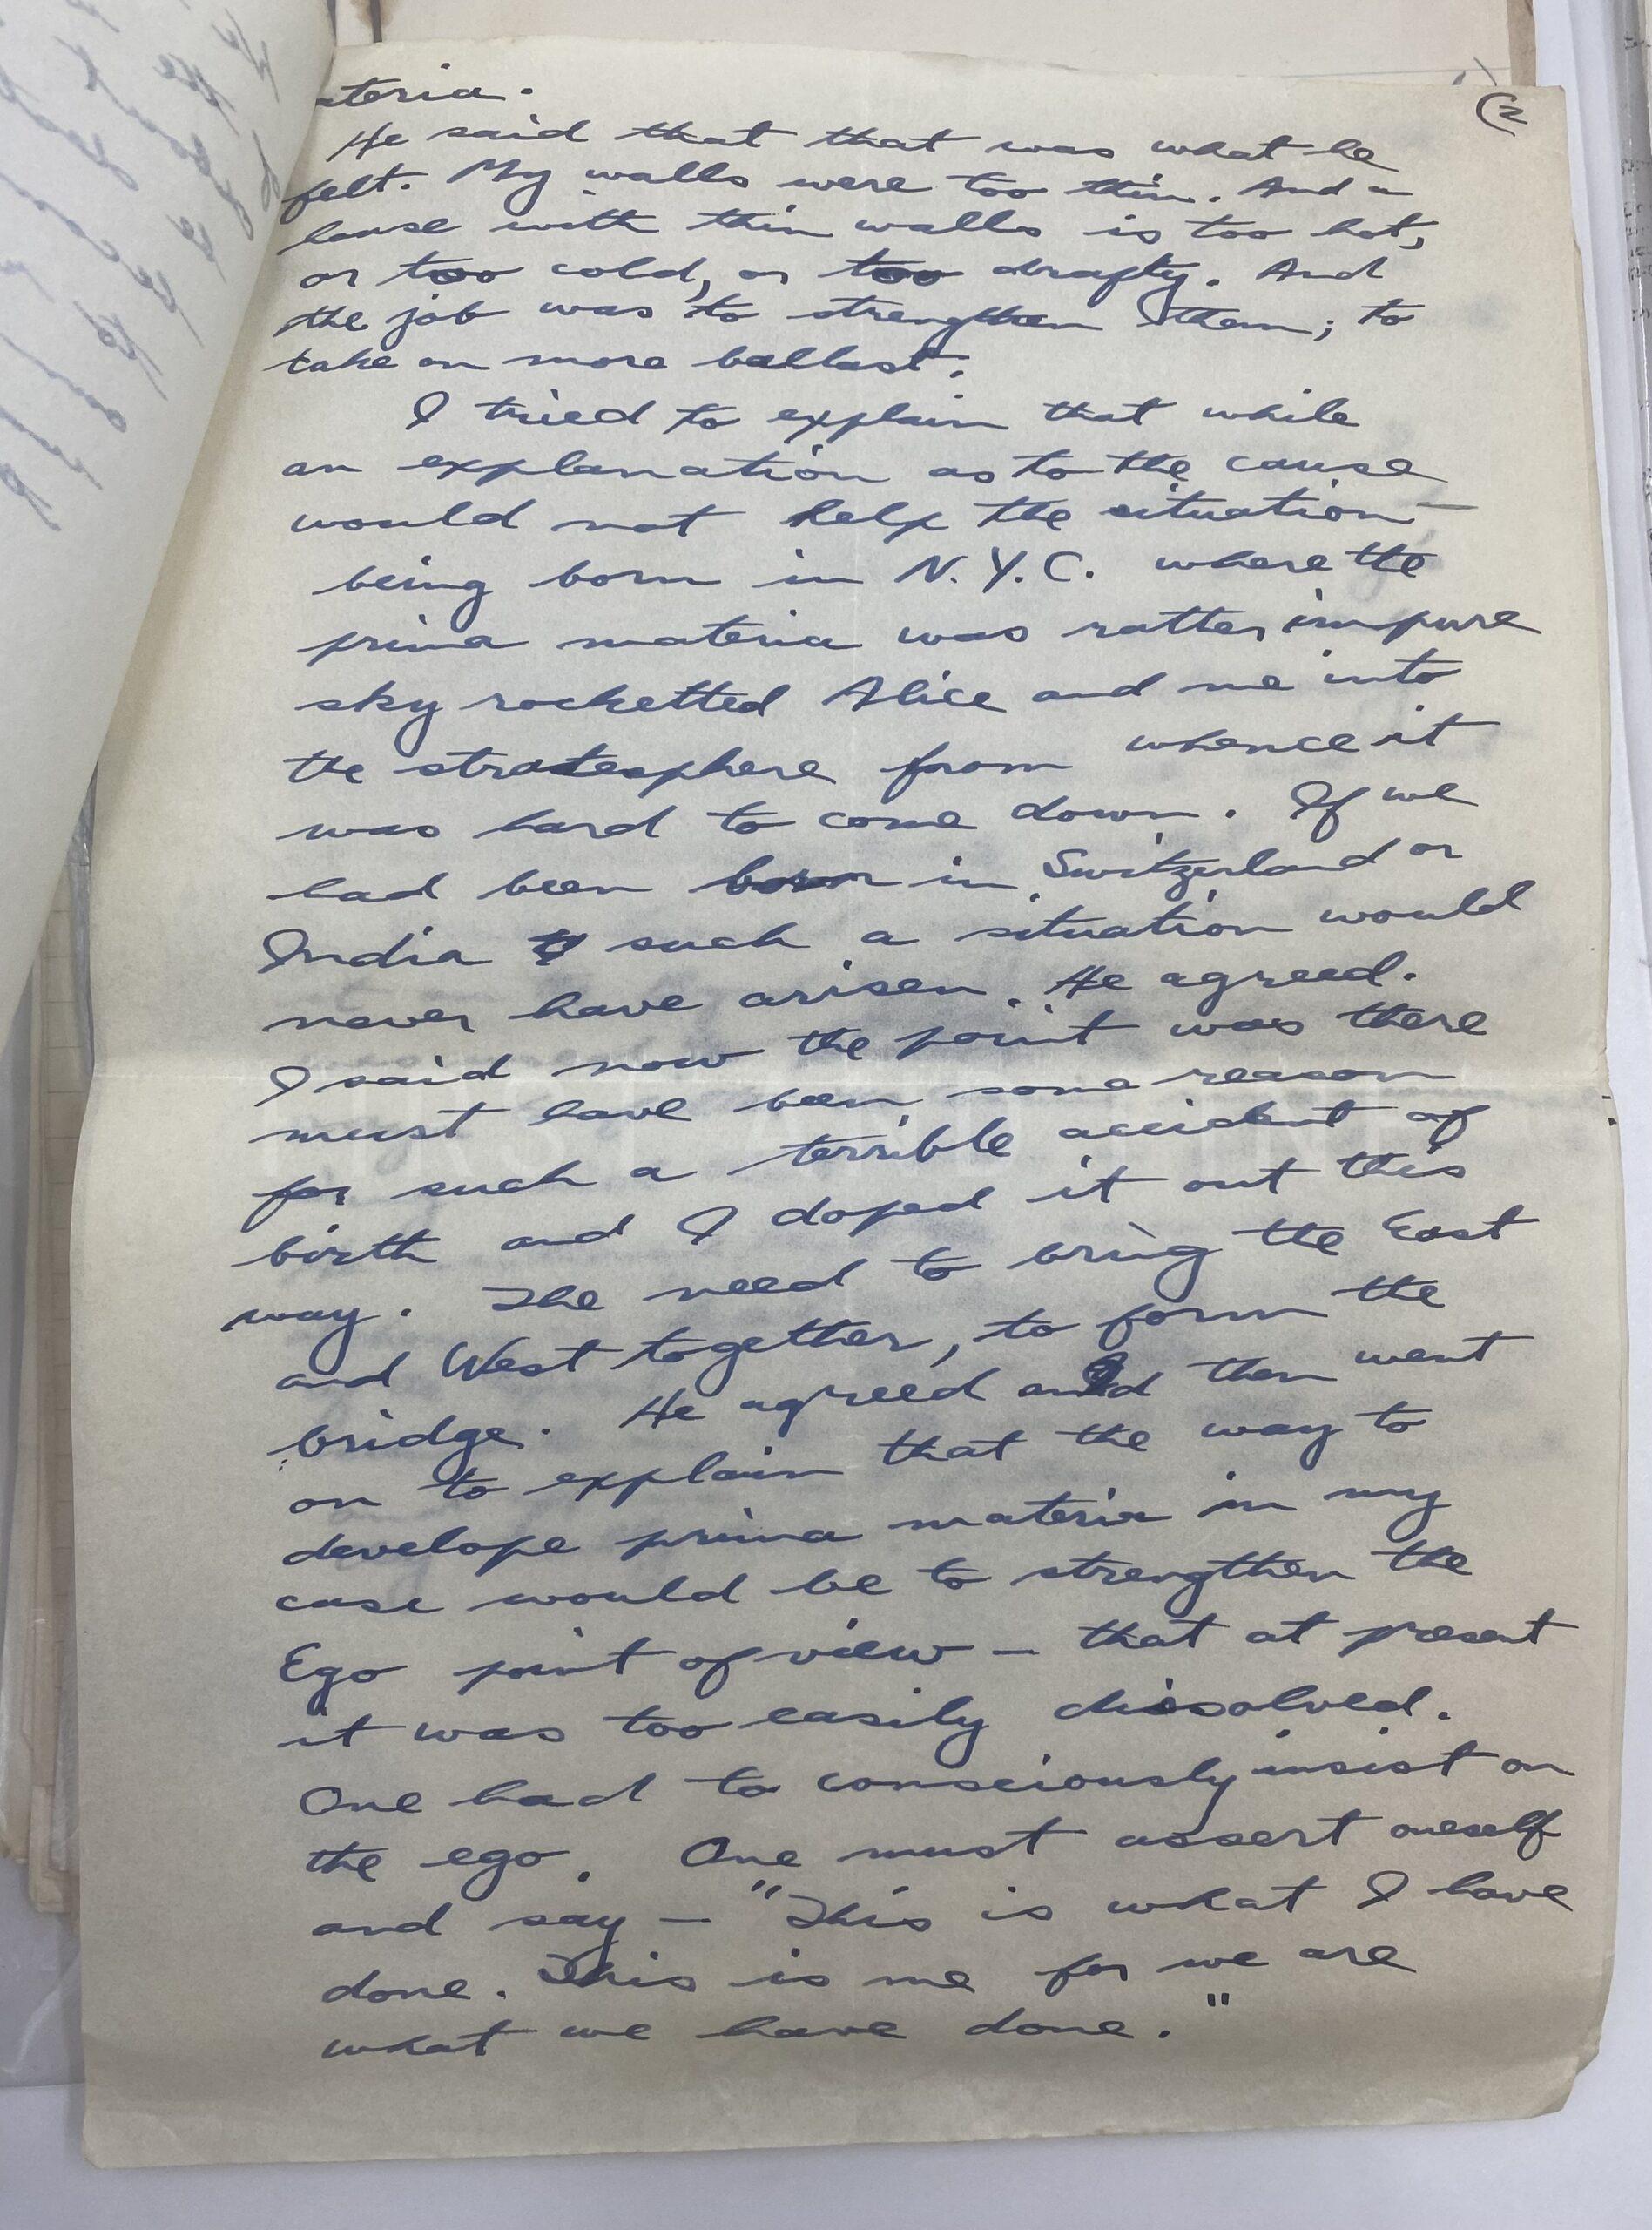 (2
ateria.
He said that that was what he
felt. My walls were too thin. And a
house with thin walls is too hot,
or too cold, or too drafty. And
the job was to strengthen them; to
take on more ballast.
I tried to explain that while
an explanation as to the cause
would not help the situation –
being born in N.Y.C. where the
prima materia was rather impure
sky rocketted Alice and me into
the stratosphere from whence it
was hard to come down. If we
had been born in Switzerland or
India such a situation would
never have arisen. He agreed.
I said now the point was there
must have been some reason
for such a terrible accident of
birth and I doped it out this
way. The need to bring the East
and West together, to form the
bridge. He agreed and then went
on to explain that the way to
develope prima materia in my
case would be to strengthen the
Ego point of view – that at present
it was too easily dissolved.
One had to consciously insist on
the ego. One must assert oneself
and say – "This is what I have
done. This is me for we are
what we have done."